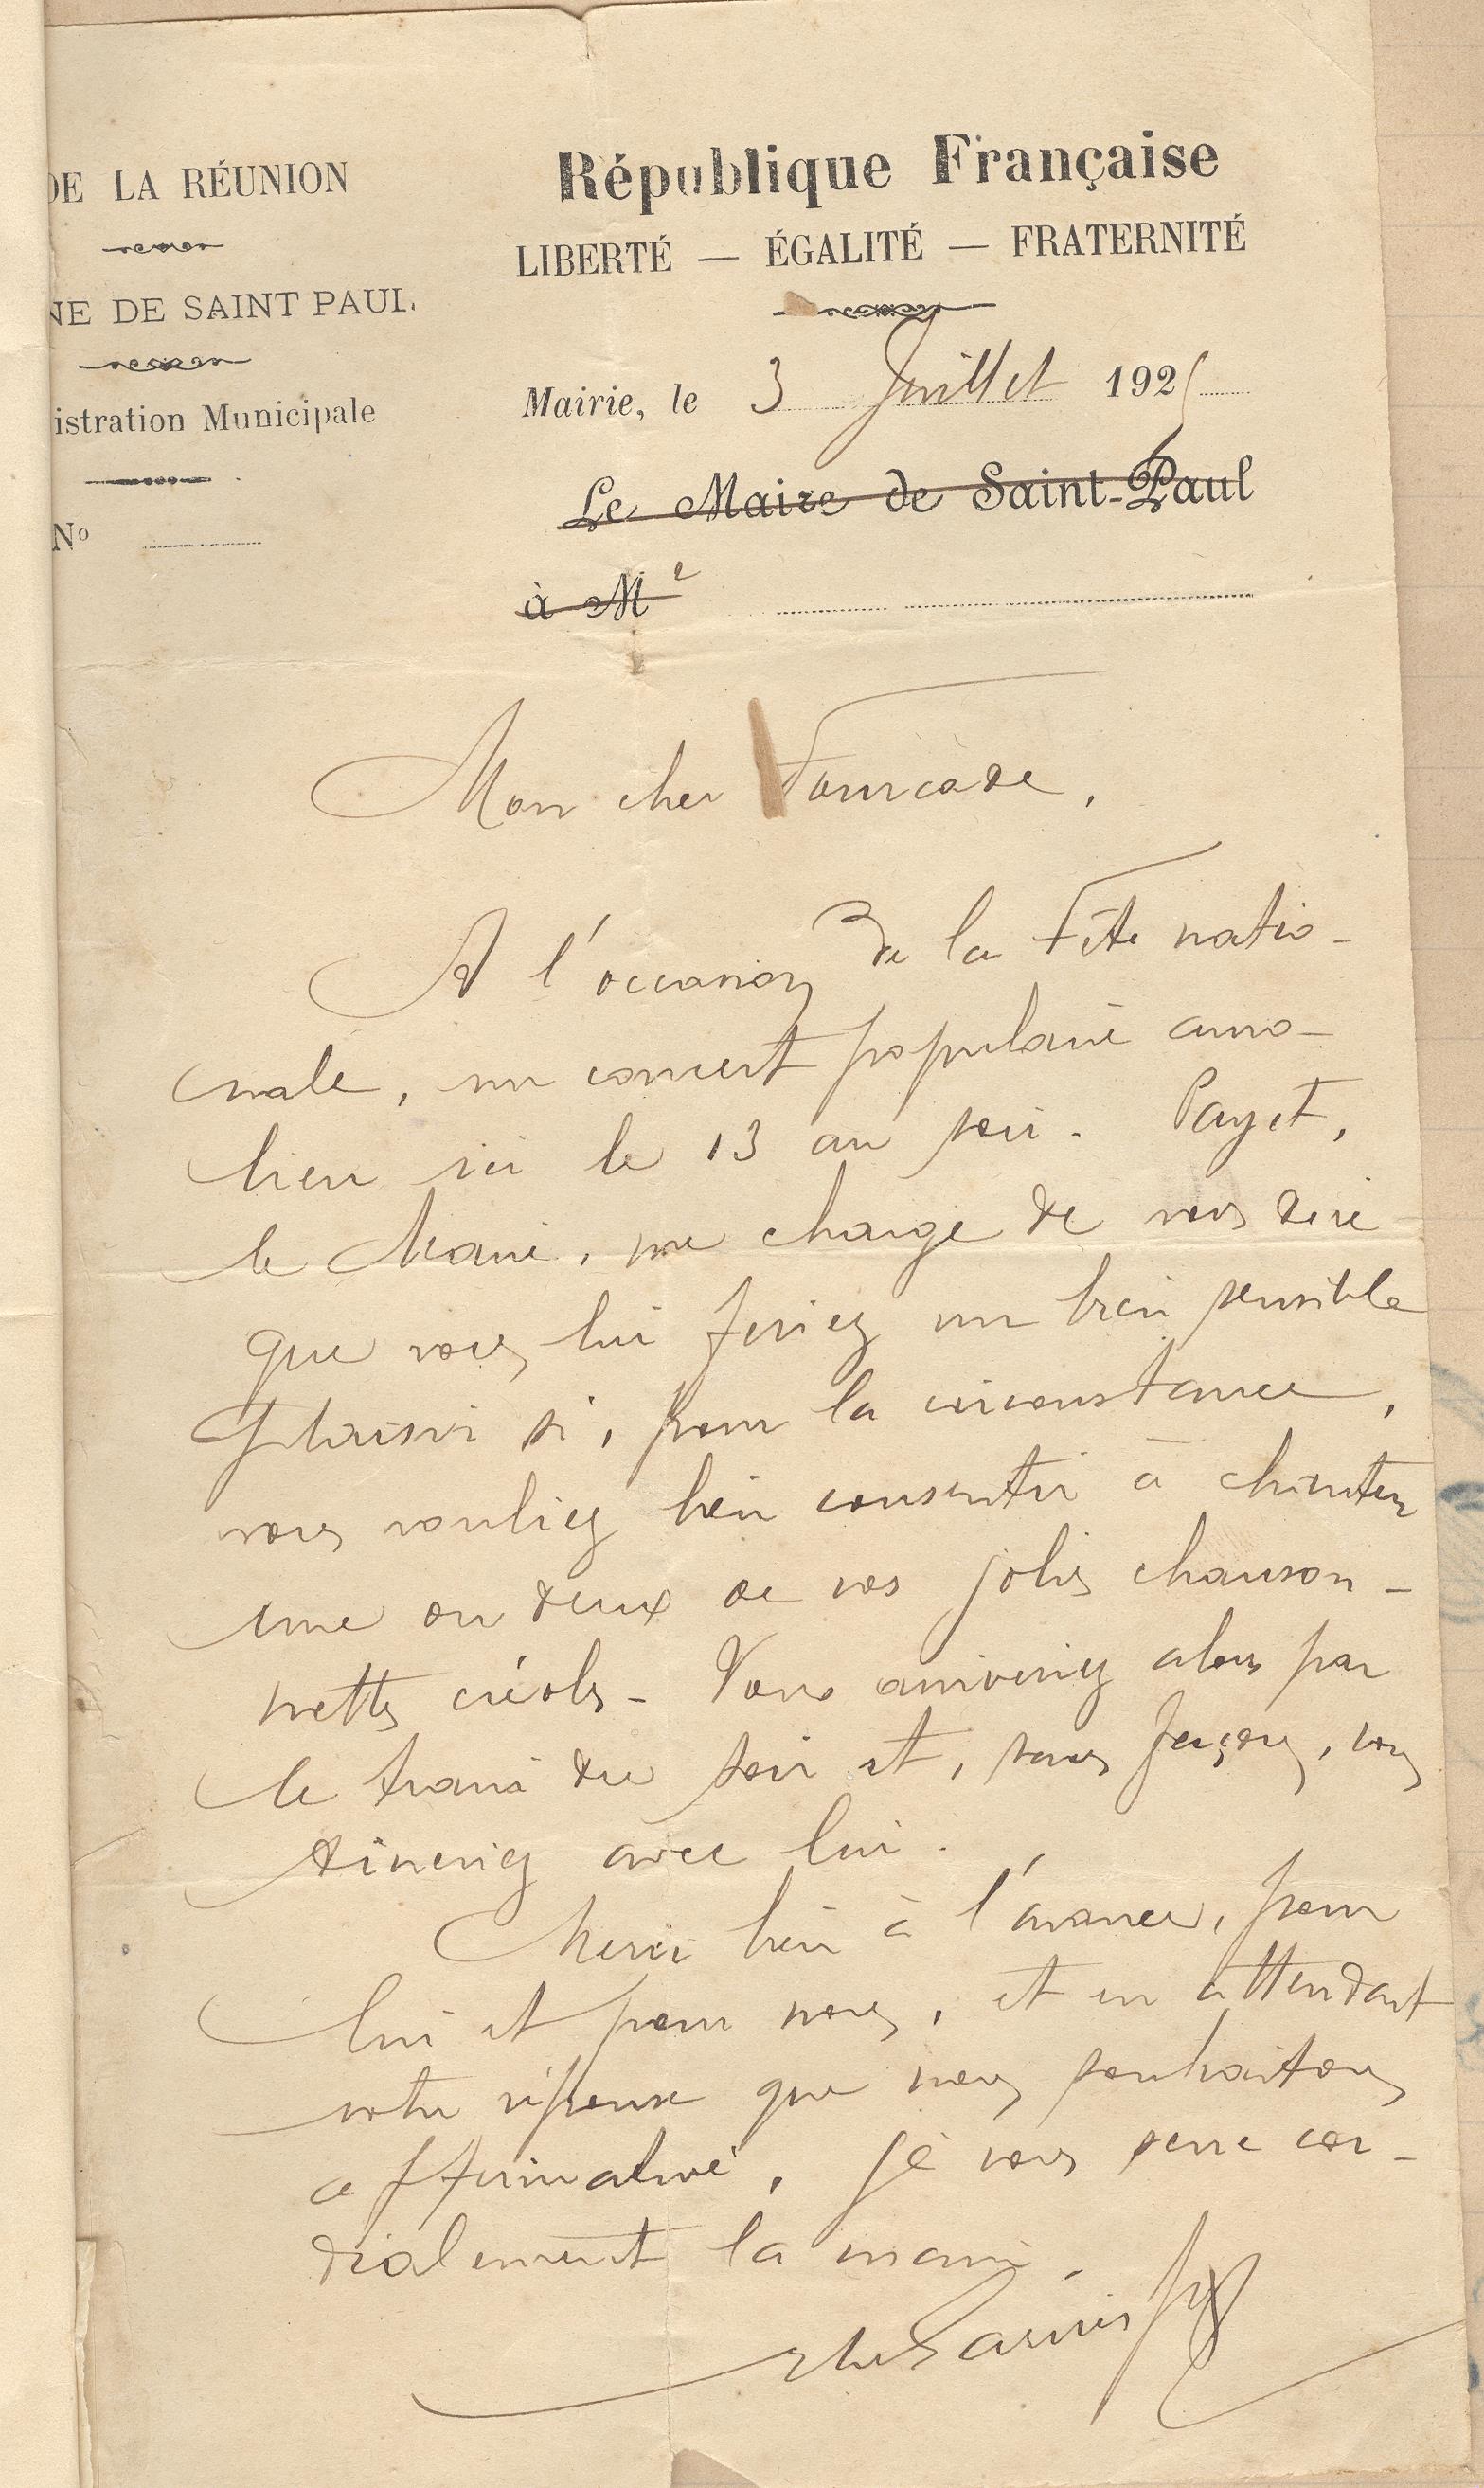 DE LA RÉUNION
NE DE SAINT PAUL
istration Municipale
Nº
République Française
LIBERTÉ — ÉGALITÉ — FRATERNITÉ
Mairie, le 3 Juillet 192
Le Maire de Saint-Paul
à M
Mon cher Fourcade,
A l'occasion de la Fête natio-
nale, un concert populaire aura
lieu ici le 13 au soir. Payet,
le Maire, me charge de vous dire
que vous lui feriez un bien sensible
plaisir si, pour la circonstance,
vous vouliez bien consentir à chanter
une ou deux de vos jolies chanson-
nettes créoles - Vous arriveriez alors par
le train du soir et, sans façons, vous
dîneriez avec lui.
Merci bien à l'avance, pour
lui et pour nous, et en attendant
votre réponse que nous souhaitons
affirmative, je vous serre cor-
dialement la main.